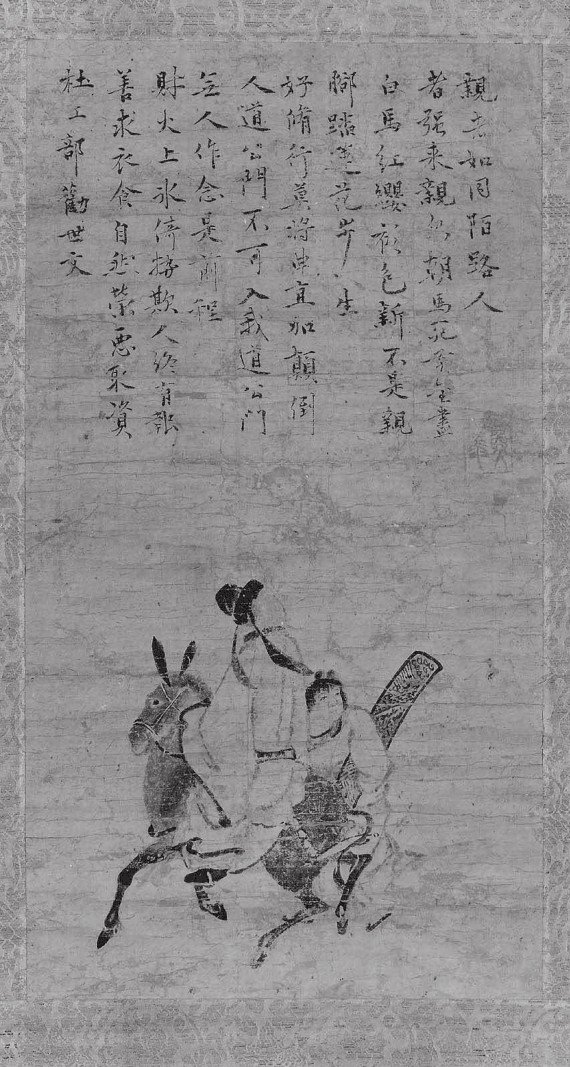 杜工部勸世文
善求衣食自然榮惡取資
財火上氷倚勢欺人終有報
無人作念是前程
人道公門不可入我道公門
好脩行莫將曲直加顛倒
脚踏蓮花步々生
白馬紅纓彩色新不是親
者强来親一朝馬死黄金盡
親者如同陌路人